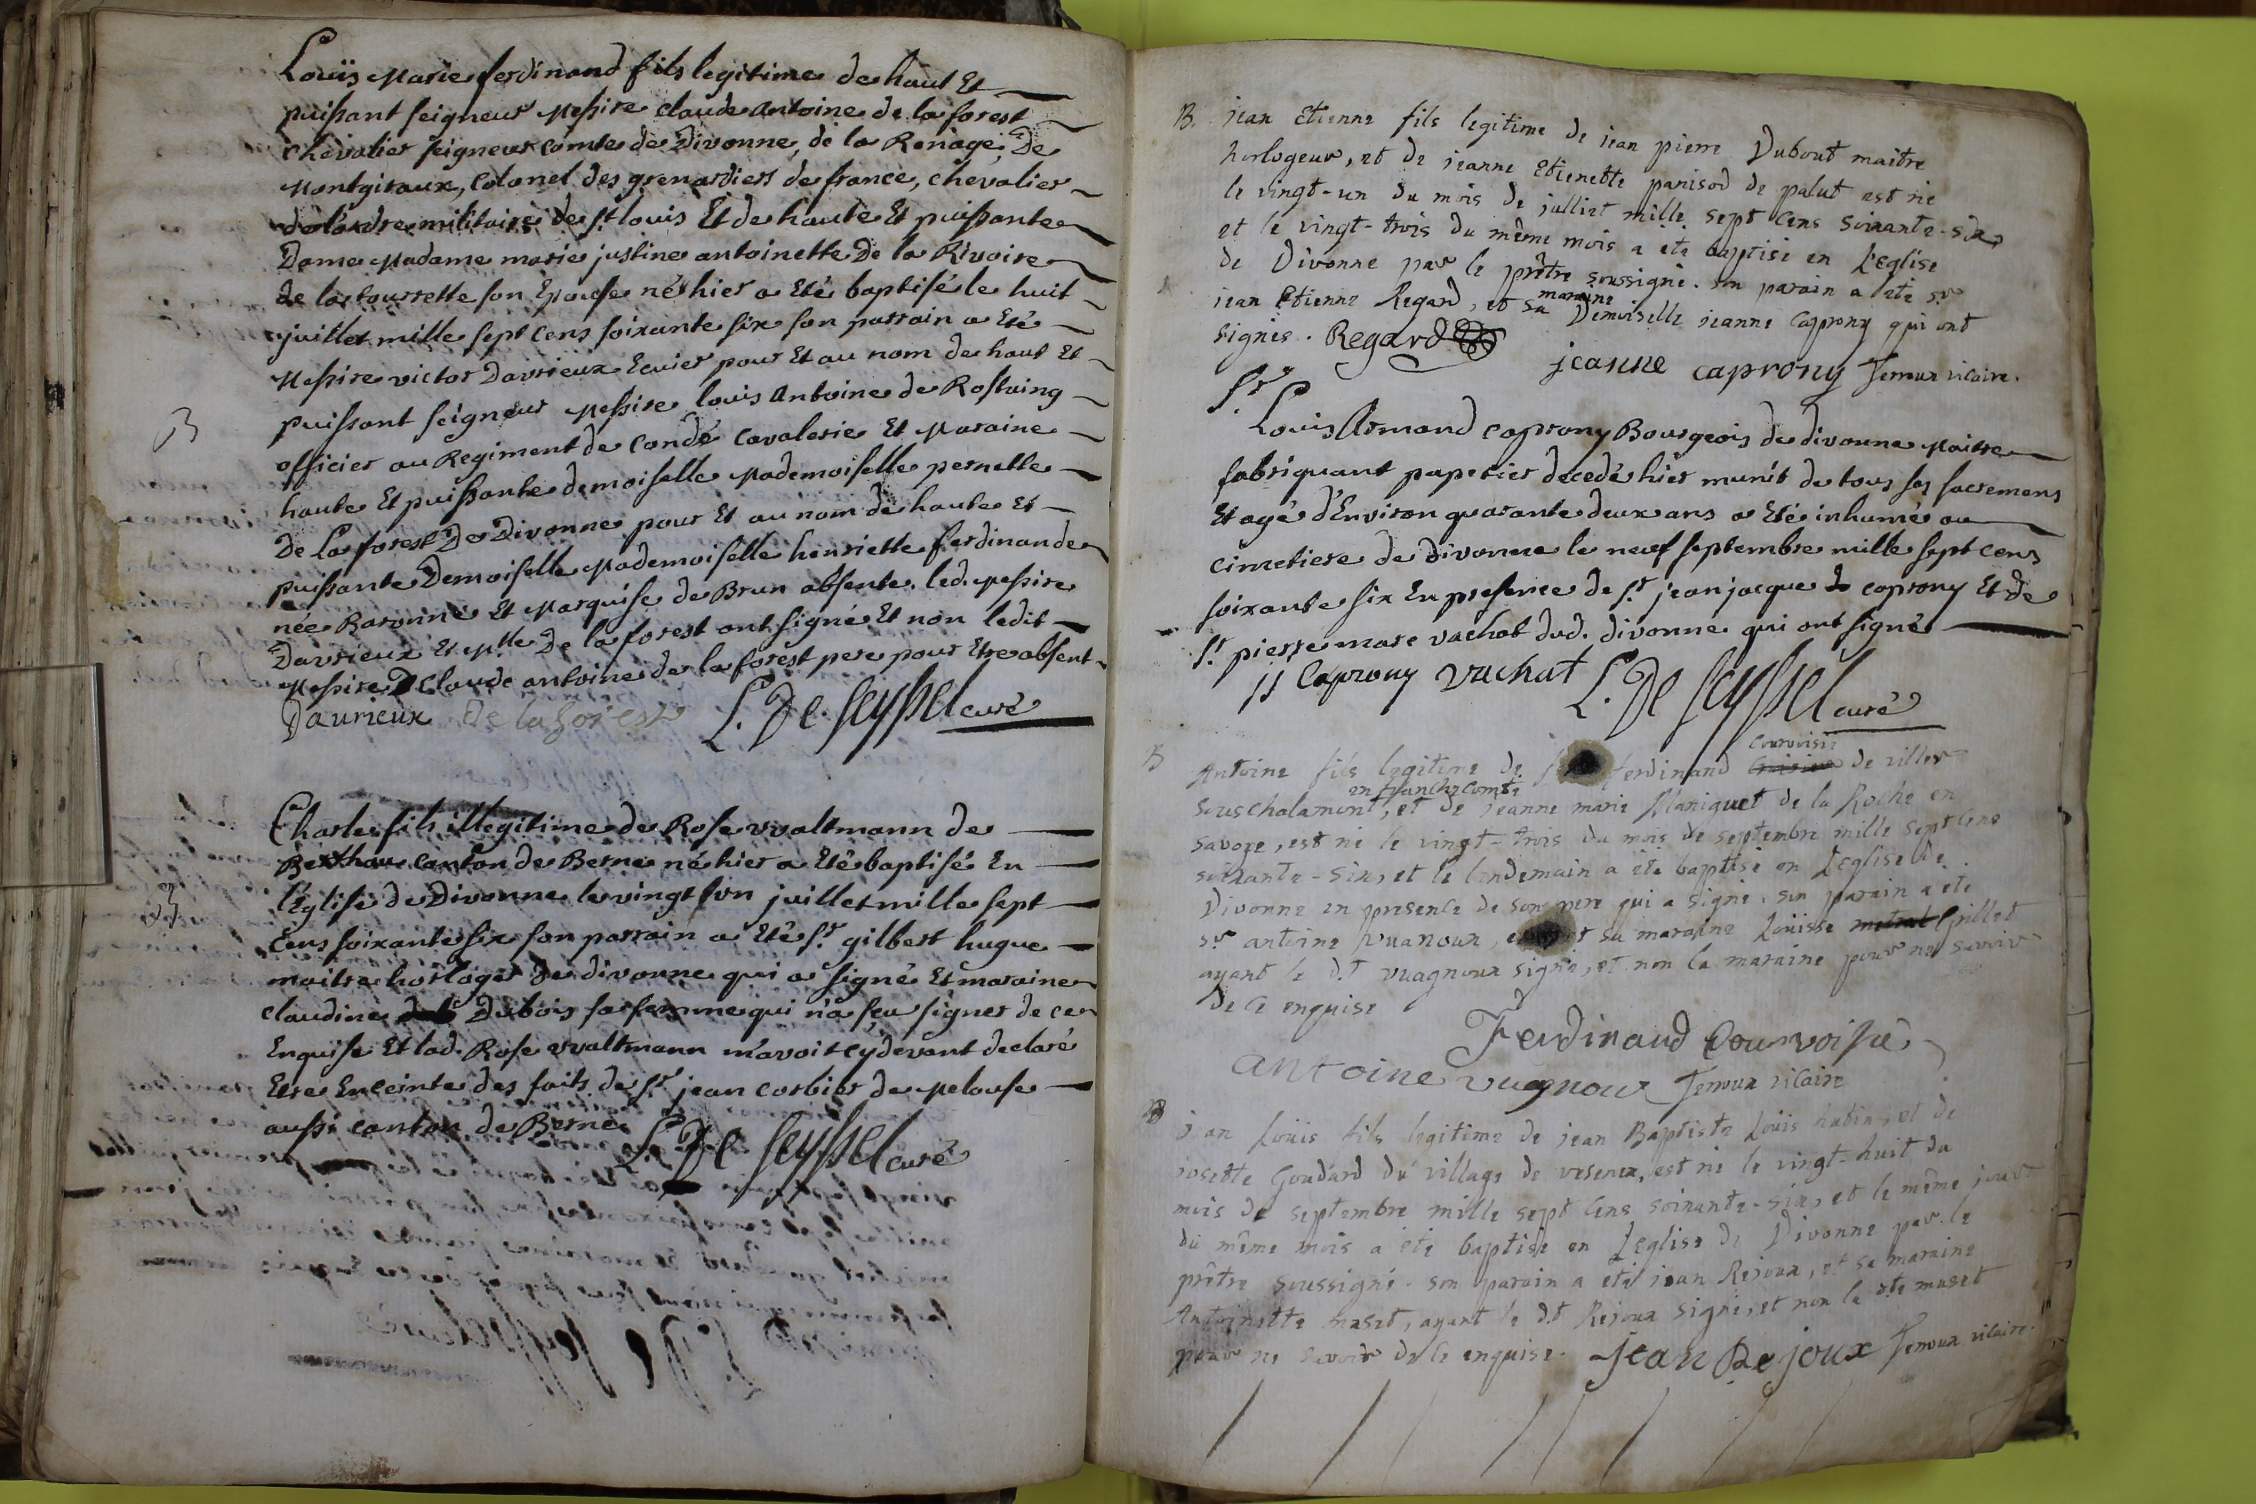 Louïs Marie ferdinand fils legitime de haut Et
puissant seigneur Messire claude antoine de la forest
chevalier seigneur comte de Divonne, de la Renage, De
Montgiraux, Colonel des grenardiers de france, chevalier
de lordre militaire de St louis Et de haute Et puissante
Dame Madame marie justine antoinette De la Rivoire
de la tourrette son Epouse né hier a Eté baptisé le huit
juillet mille sept cens soixante six son parrain a Eté
Messire victor Davrieux Ecuier pour Et au nom de haut Et
puissant seigneur Messire louis Antoine de Rostaing
B
officier au Regiment de condé cavalerie Et Maraine
haute Et puissante demoiselle Mademoiselle pernette
De La forest De Divonne pour Et au nom de haute Et
puissante Demoiselle Mademoiselle henriette ferdinande
née Baronne Et Marquise de Brun absente. led. Messire
Davrieux Et Mlle De la forest ont signé Et non ledit
Messire Claude antoine de la forest pere pour Etre absent
Davrieux De la forest L. De Seyssel curé
Charle fils illegitime de Rose wvaltmann de
Berthou canton de Berne né hier a Eté baptisé En
B
l'Eglise de Divonne le vingt juillet mille sept
Cens soixante six son parrain a Eté Sr. gilbert hugue
maitre horloger de divonne qui a signé Et maraine
claudine Dubois sa femme qui n'a sçu signer de ce
Enquise Et lad. Rose wvaltmann m'avoit cy devant declaré
Etre Enceinte des faits de Sr. jean corbier de Melouse
aussi canton de Berne.
L. De Seyssel curé
B. jean Etienne fils legitime de jean pierre Dubout maitre
horlogeur, et de jeanne Etienette panisod de palut est né
le vingt-un du mois de julliet mille sept cens soixante-six,
et le vingt-trois du même mois a été baptisé en L'Eglise
de Divonne par le prêtre soussigné. son parain a été sr
jean Etienne Regard, et sa maraine Demoiselle jeanne Caprony qui ont
signés. Regard jeanne caprony Fenoux vicaire.
Sr.
Louis Armand caprony Bourgeois de divonne Maitre
fabriquant papetier decedé hier munit de tous ses sacremens
Et agé d'Environ quarante deux ans a Eté inhumé au
cimetiere de divonne le neuf septembre mille sept cens
soixante six En presence de Sr. jean jacque caprony Et de
Sr. pierre marc vachat dud. divonne qui ont signé
jj Caprony Vachat L. De Seyssel curé
B
Antoine fils legitime de ferdinand courvoisié de villers
sous chalamont, en franche comté et de jeanne marie Maniguet de la Roche en
savoye, est né le vingt-trois du mois de septembre mille sept cens
soixante-six, et le lendemain a été baptisé en L'eglise de
Divonne en presence de son pere qui a signé. son parain a été
sr antoine vuanoux, et sa maraine Loüisse Grillet
ayant le d.t vuagnoux signé, et non la maraine pour ne savoir
de ce enquise
Ferdinand Courvoisié
antoine vugnoux Fenoux vicaire
B
jean Loüis fils legitime de jean Baptiste Loüis hutin, et de
josette Goudard du village de vesenex, est né le vingt-huit du
mois de septembre mille sept cens soixante-six, et le même jour
du même mois a été baptisé en L'eglise de Divonne par le
prêtre soussigné. son parain a été jean Rejoux, et sa maraine
Antoinette maset, ayant le d.t Rejoux signé, et non la dte maset
pour ne savoir de ce enquise. jean Dejoux Fenoux vicaire.